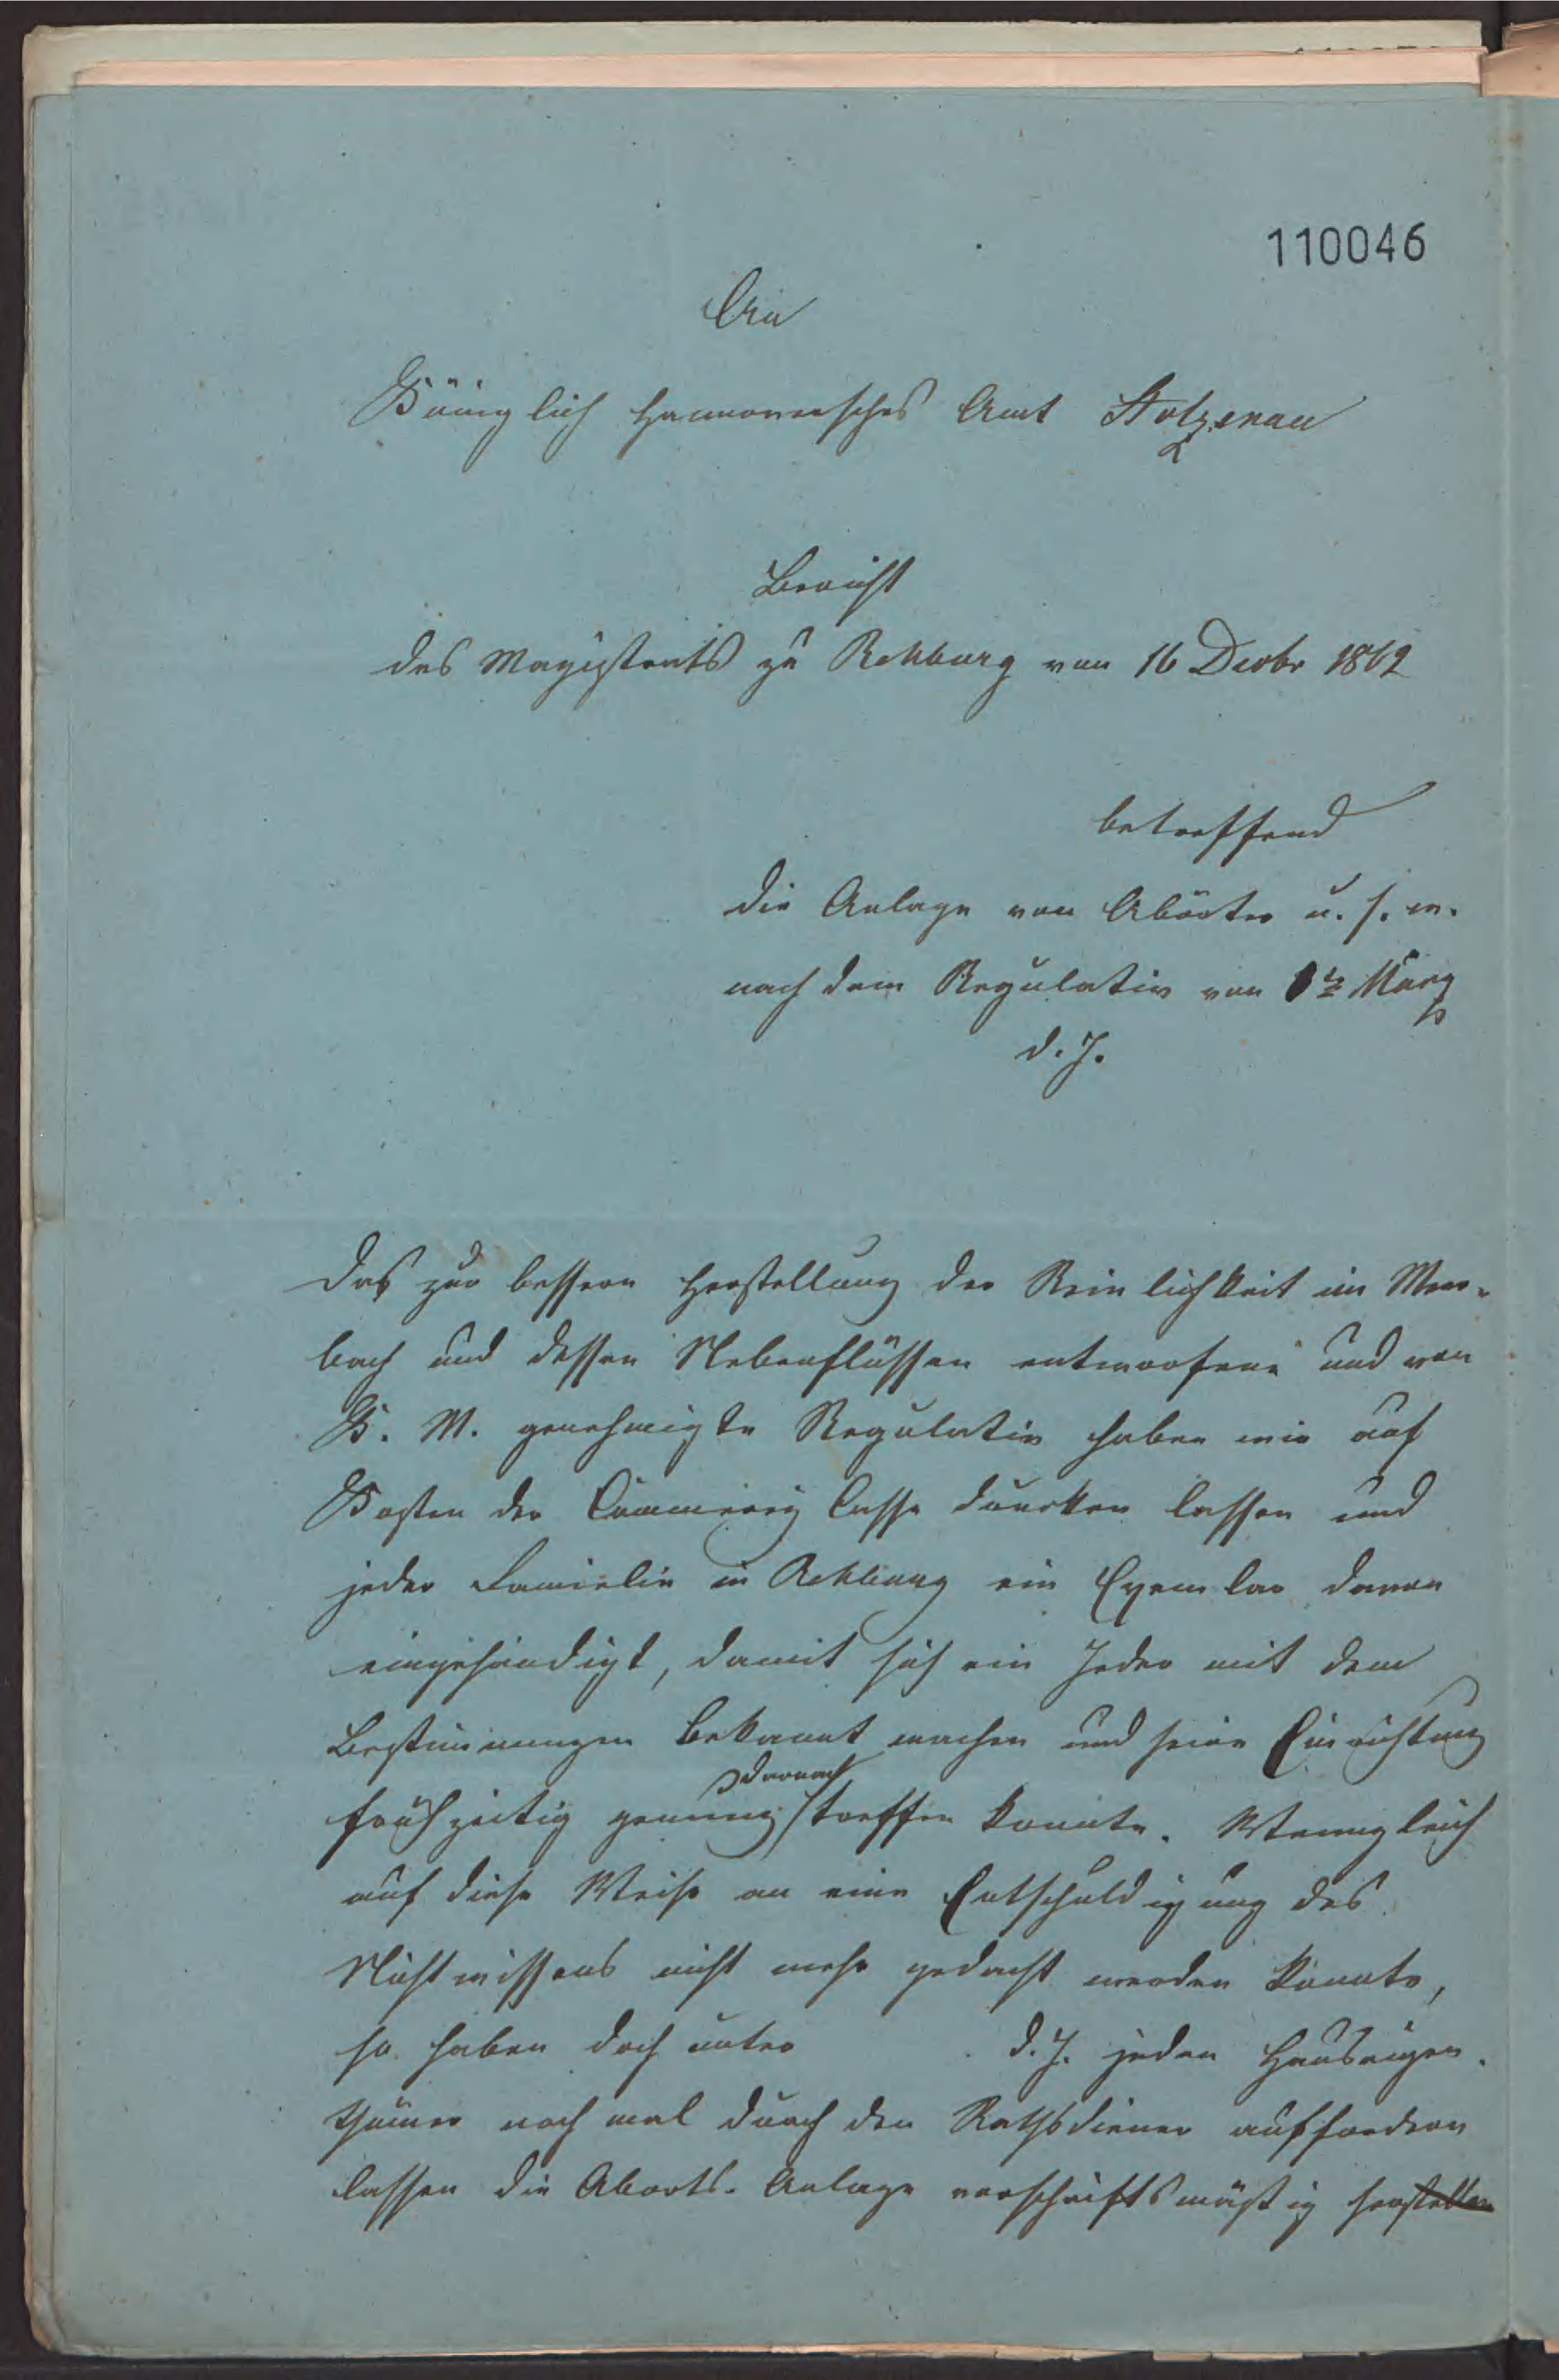 110046
An
Königlich Hannoversches Amt Stolzenau
Bericht
des Magistrats zu Rehburg vom 16 Decbr 1862
betreffend
die Anlage von Abörter u. s. w.
nach dem Regulativ vom März
d. J.
Das zur bessern Herstellung der Reinlichkeit im Meer-
bach und dessen Nebenflüssen entworfene und von
K. M. genehmigte Regulativ haben wir auf
Kosten der Cämmerey Casse drucken lassen und
jeder Familie in Rehburg ein Exemplar davon
eingehändigt, damit sich ein Jeder mit dem
Bestimmungen bekannt machen und seine Einrichtung
frühzeitig genung darnach treffen konnte. Wenngleich
auf diese Weise an eine Entschuldigung des
Nichtwissens nicht mehr gedacht werden konnte,
so haben doch unter d. J. jeden Hauseigen-
thümer noch mal durch den Rathsdiener auffordern
lassen die Aborts-Anlage vorschriftsmäßig herstellen